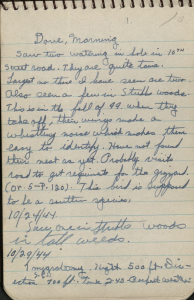 Dove, Morning
Saw two waterng in hole in 10TH
Street road. They are quite tame.
Largest no this is best seen are two
Also seen a few in Stubbs woods.
This is in the fall of 44. when they
take off, their wings make a
whistling noise which makes them
easy to identify. Have not found
their nest as yet. Probably visits
road to get requisite for the gizzard
(or 5-7-120). This bird is supposed
to be a southern species.
10/24/44.
Saw one in Stubbs woods
in tall weeds.
10/29/44
1 migrating. Height 500 ft. Dis-
tance 700 ft. Time 2:40